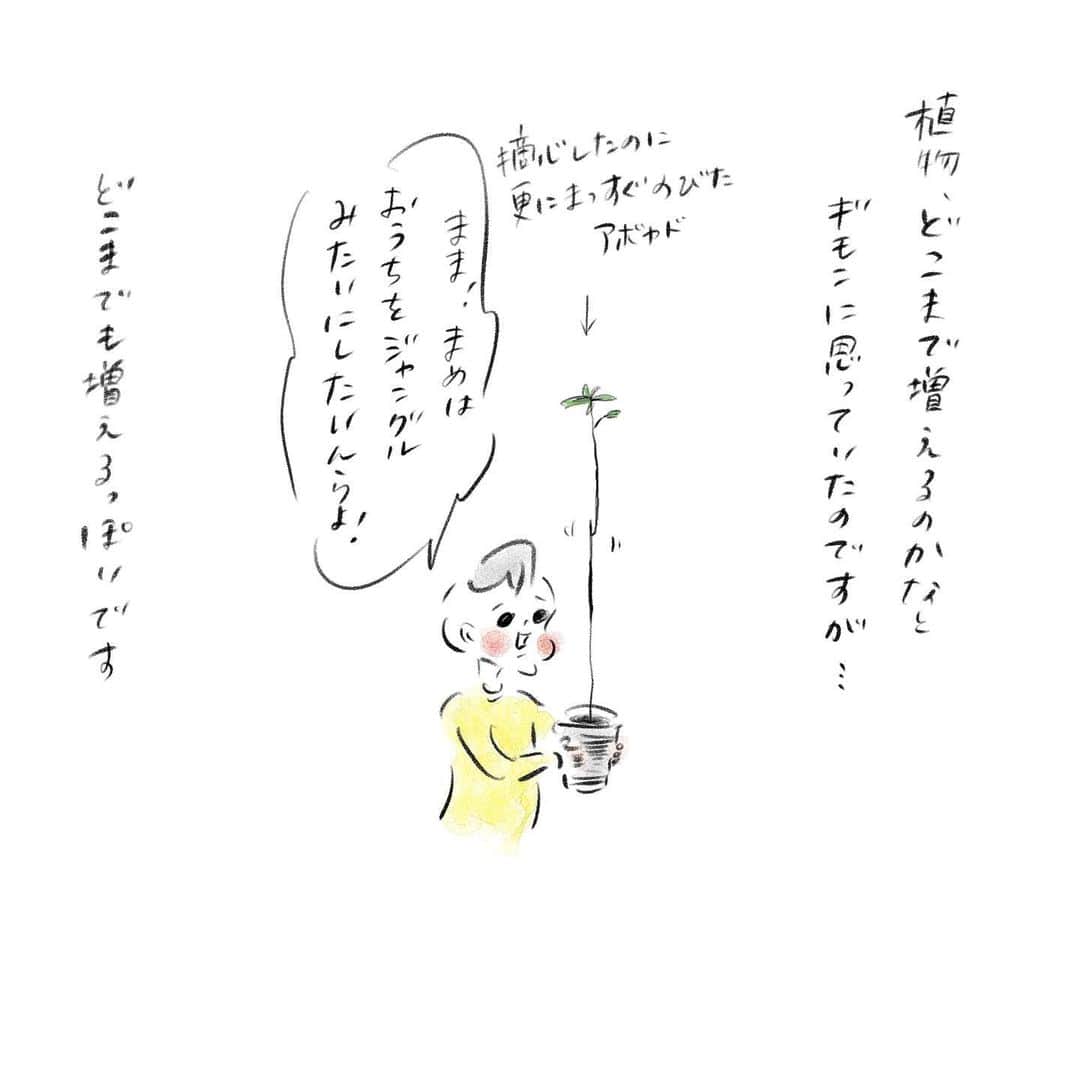 植物、どこまで増えるのかなと
ギモンに思っていたのですが…
摘心したのに
更にまっすぐのびた
アボカド
まま！まめは
おうちをジャングル
みたいにしたいんらよ！
どこまでも増えるっぽいです